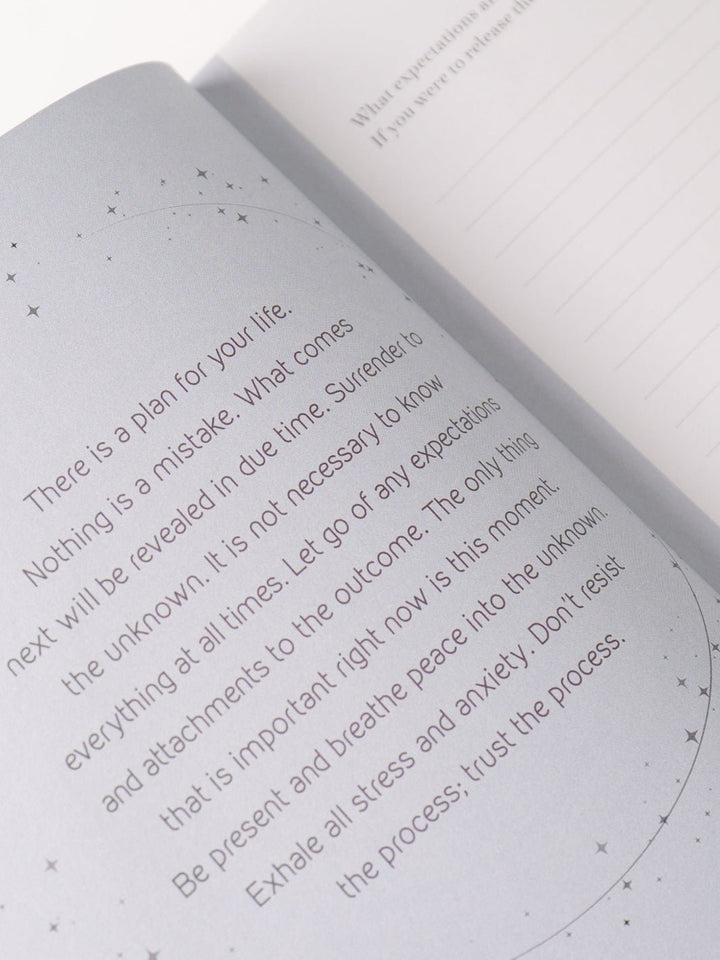 What expectations
If you were to release
There is a plan for your life.
Nothing is a mistake. What comes
next will be revealed in due time. Surrender to
the unknown. It is not necessary to know
everything at all times. Let go of any expectations
and attachments to the outcome. The only thing
that is important right now is this moment.
Be present and breathe peace into the unknown.
Exhale all stress and anxiety. Don't resist
the process; trust the process.